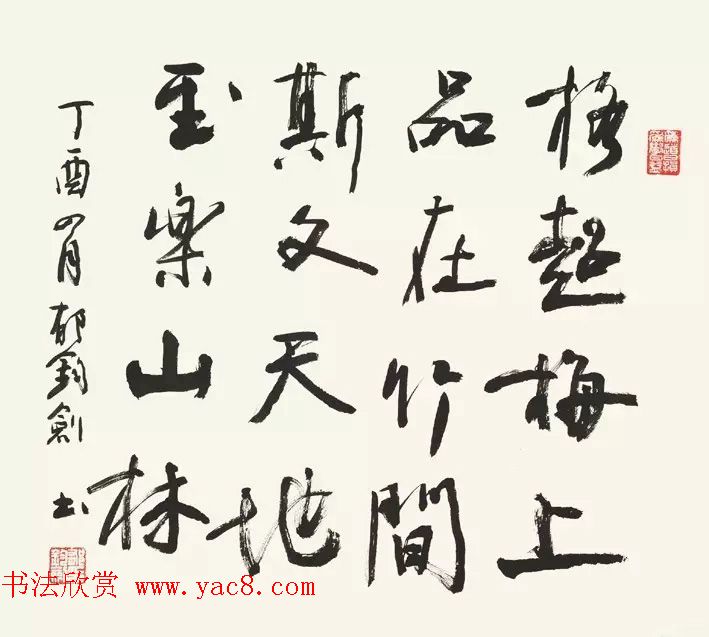 格超梅上
品在竹間
斯文天地
至樂山林
丁酉四月郁鈞劍書
书法欣赏 www.yac8.com